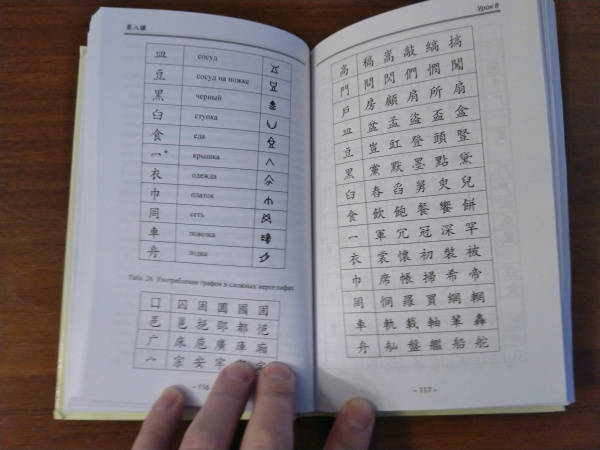 第八課
皿 сосуд
豆 сосуд на ножке
黑 черный
臼 ступка
食 еда
冖* крышка
衣 одежда
巾 платок
网 сеть
車 повозка
舟 лодка
Табл. 28. Употребление графем в сложных иероглифах
囗 囚 困 圃 國 固
邑 邕 扼 邵 都 悒
广 床 庖 廣 庫 廟
宀 宗 安 字
– 156 –
Урок 8
高 稿 嵩 敲 縞 搞
門 問 閃 們 憫 聞
戶 房 顧 肩 所 扇
皿 盆 孟 盜 盃 盒
豆 豈 豇 登 頭 豎
黑 黨 默 墨 點 黛
臼 舂 舀 舅 臾 兒
食 飲 飽 餐 饗 餅
冖 軍 冗 冠 深 罕
衣 裳 懷 初 裝 被
巾 席 帳 掃 希 帝
罔 惘 羅 買 網 輞
車 軌 載 軸 軍 轟
舟 舢 盤 艦 船 舵
– 157 –